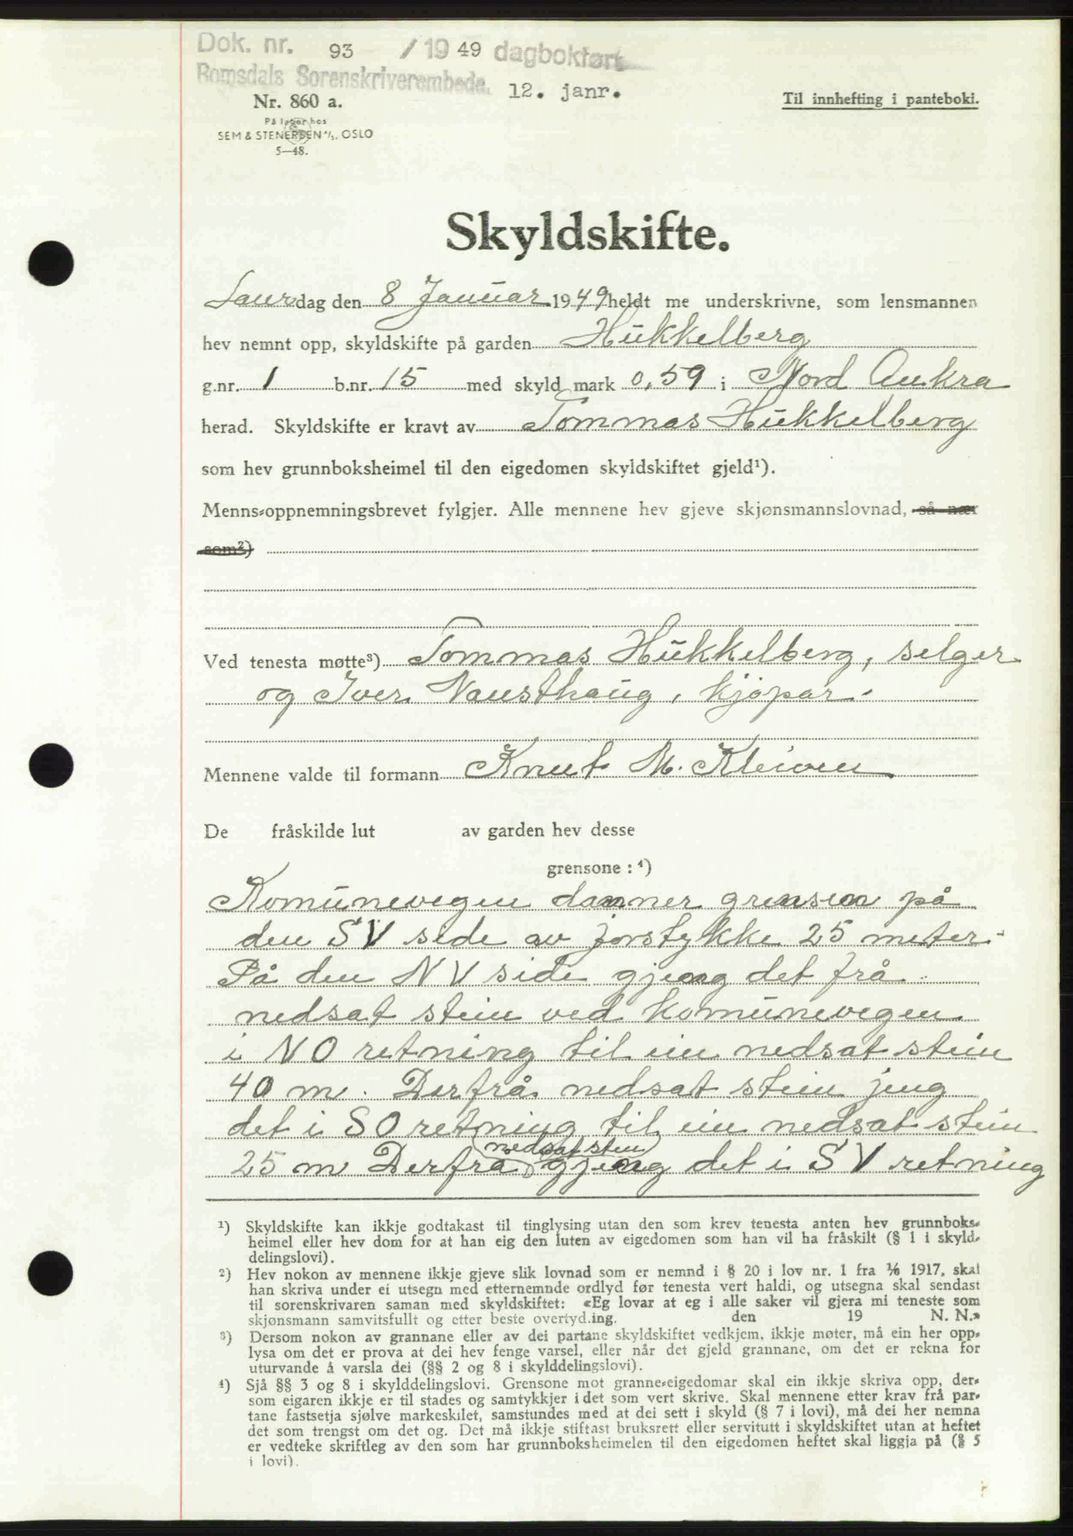 Dok. nr. 93 / 1949 dagbokført
Romsdals Sorenskriverembede. 12. janr.
Nr. 860 a.
Til innhefting i panteboki.
På lager hos
SEM & STENERSEN A/S, OSLO
5—48.
Skyldskifte.
Laurdag den 8 Januar 1949 heldt me underskrivne, som lensmannen
hev nemnt opp, skyldskifte på garden Hukkelberg
g.nr. 1 b.nr. 15 med skyld mark 0,59 i Nord Aukra
herad. Skyldskifte er kravt av Tommas Hukkelberg
som hev grunnboksheimel til den eigedomen skyldskiftet gjeld¹).
Menns-oppnemningsbrevet fylgjer. Alle mennene hev gjeve skjønsmannslovnad, så nær
som²)
Ved tenesta møtte³) Tommas Hukkelberg, selger
og Iver Nausthaug, kjöpar.
Mennene valde til formann Knut M. Kleiven
De fråskilde lut av garden hev desse
grensone : ⁴)
Komunevegen danner grensen på
den SV side av jorstykke 25 meter.
På den NV side gjeng det frå
nedsat stein ved komunevegen
i NO retning til ein nedsat stein
40 m. Derfrå nedsat stein jeng
det i SO retning til ein nedsat stein
25 m Derfra (nedsat stein) gjeng det i SV retning
¹) Skyldskifte kan ikkje godtakast til tinglysing utan den som krev tenesta anten hev grunnboks-
heimel eller hev dom for at han eig den luten av eigedomen som han vil ha fråskilt (§ 1 i skyld-
delingslovi).
²) Hev nokon av mennene ikkje gjeve slik lovnad som er nemnd i § 20 i lov nr. 1 fra 1/6 1917, skal
han skriva under ei utsegn med etternemnde ordlyd før tenesta vert haldi, og utsegna skal sendast
til sorenskrivaren saman med skyldskiftet: «Eg lovar at eg i alle saker vil gjera mi teneste som
skjønsmann samvitsfullt og etter beste overtyd.ing. den 19 N. N.»
³) Dersom nokon av grannane eller av dei partane skyldskiftet vedkjem, ikkje møter, må ein her opp-
lysa om det er prova at dei hev fenge varsel, eller når det gjeld grannane, om det er rekna for
uturvande å varsla dei (§§ 2 og 8 i skylddelingslovi).
⁴) Sjå §§ 3 og 8 i skylddelingslovi. Grensone mot granne-eigedomar skal ein ikkje skriva opp, der-
som eigaren ikkje er til stades og samtykkjer i det som vert skrive. Skal mennene etter krav frå par-
tane fastsetja sjølve markeskilet, samstundes med at dei sett i skyld (§ 7 i lovi), må dei her nemna
det som trengst om det og. Det må ikkje stiftast bruksrett eller servitutt i skyldskiftet utan at heftet
er vedteke skriftleg av den som har grunnboksheimelen til den eigedomen heftet skal liggja på (§ 5
i lovi).